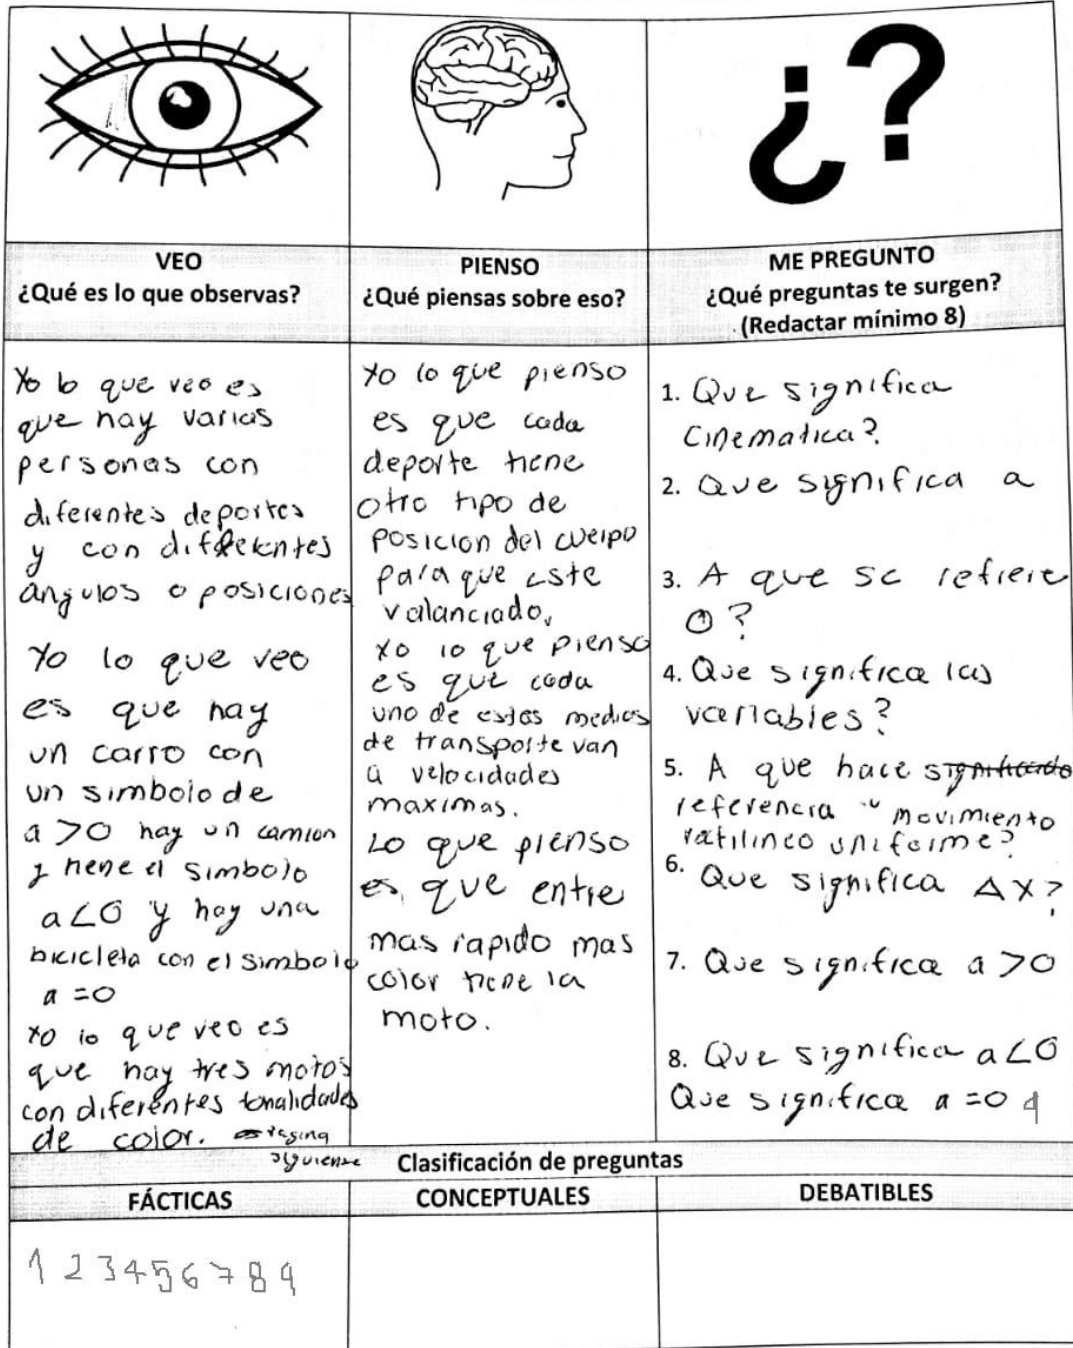 ¿?
VEO
¿Qué es lo que observas?
PIENSO
¿Qué piensas sobre eso?
ME PREGUNTO
¿Qué preguntas te surgen?
(Redactar mínimo 8)
Yo lo que veo es
que hay varias
personas con
diferentes deportes
y con diferentes
angulos o posiciones
Yo lo que veo
es que hay
un carro con
un simbolo de
a >0 hay un camion
y tiene el simbolo
a<0 y hay una
bicicleta con el simbolo
a =0
Yo lo que veo es
que hay tres motos
con diferentes tonalidades
de color.
siguiente
Yo lo que pienso
es que cada
deporte tiene
otro tipo de
posicion del cuerpo
para que este
valanciado.
Yo lo que pienso
es que cada
uno de estos medios
de transporte van
a velocidades
maximas.
Lo que pienso
es que entre
mas rapido mas
color tiene la
moto.
1. Que significa
cinematica?
2. Que significa a
3. A que se refiere
0?
4. Que significa las
variables?
5. A que hace
referencia " movimiento
ratilineo uniforme?
6. Que significa Δx?
7. Que significa a >0
8. Que significa a<0
Que significa a =0 9
Clasificación de preguntas
FÁCTICAS
CONCEPTUALES
DEBATIBLES
1 2 3 4 5 6 7 8 9